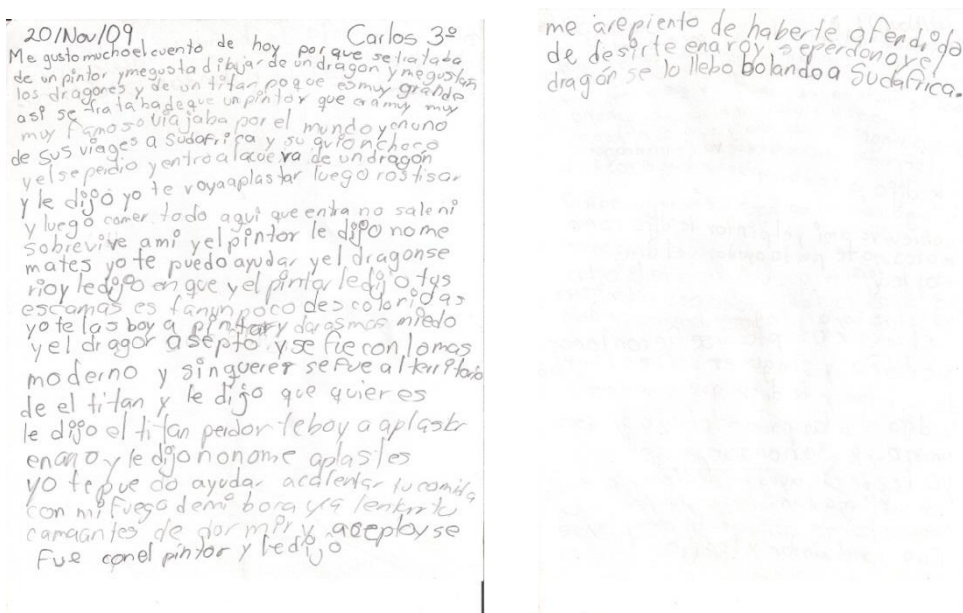 20/Nov/09 Carlos 3º
Me gusto mucho el cuento de hoy porque se trataba
de un pintor y me gusta dibujar de un dragon y me gustan
los dragores y de un titan poque es muy grande
asi se tratabade que un pintor que era muy muy
muy famoso viajaba por el mundo y en uno
de sus viages a Sudafrica y su avion choco
y el se perdio y entro a la cueva de un dragon
y le dijo yo te voy a aplastar luego rostisar
y luego comer todo aqui que entra no sale ni
sobrevive ami y el pintor le dijo no me
mates yo te puedo ayudar y el dragon se
rio y le dijo en que y el pintor le dijo tus
escamas es tan un poco descoloridas
yo te las boy a pintar y daras mas miedo
y el dragor asepto y se fue con lo mas
moderno y sin querer se fue al territorio
de el titan y le dijo que quieres
le dijo el titan perdor te boy a aplastr
enano y le dijo no no me aplastes
yo te pue do ayudar acalentar tu comida
con mi fuego demi boca y a
cama antes de dor mir y acepto y se
fue con el pintor y le dijo
me arepiento de haberte ofendido
de desirte enaroy se perdono y el
dragón se lo llebo bolando a Sudafrica.